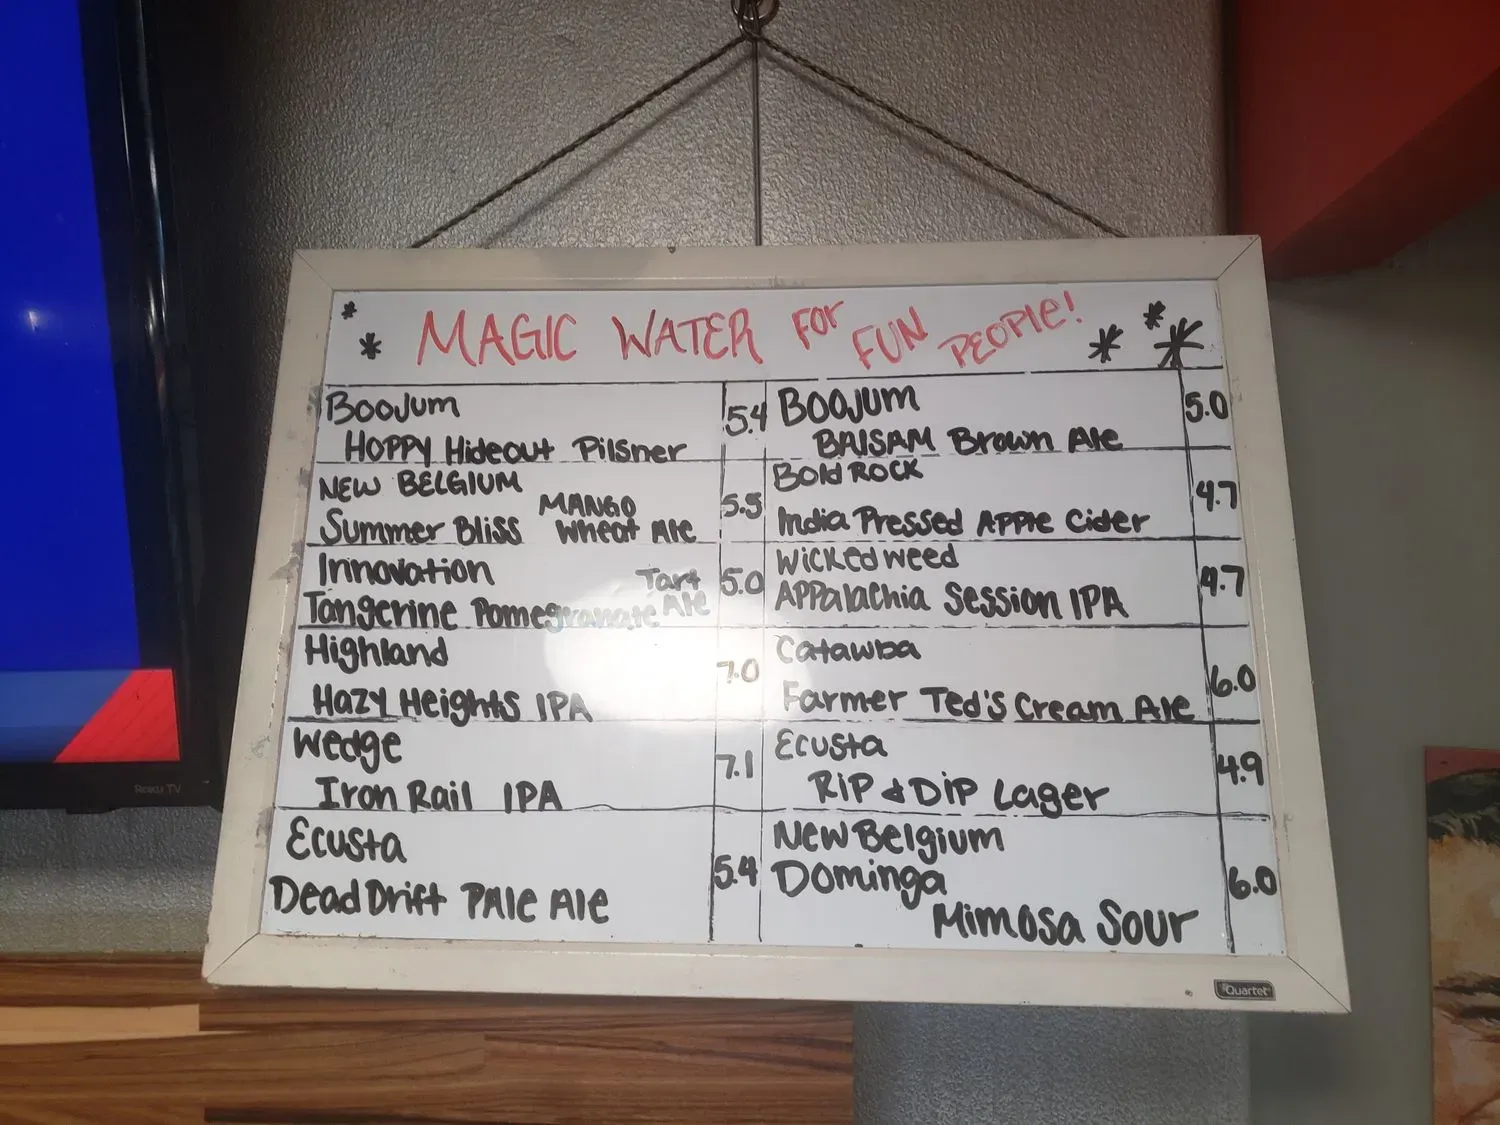 * * MAGIC WATER FOR FUN PEOPLE! * * *
BOOJUM
HOPPY Hideout Pilsner
5.4
NEW BELGIUM
Summer Bliss MANGO
Wheat Ale
5.5
Innovation
Tangerine Pomegranate Tart
Ale
5.0
Highland
Hazy Heights IPA
7.0
Wedge
Iron Rail IPA
7.1
Ecusta
Dead Drift PAle Ale
5.4
BOOJUM
BAlSAM Brown Ale
5.0
Bold ROCK
India Pressed APPle Cider
4.7
Wicked weed
APPalachia Session IPA
4.7
Catawba
Farmer Ted's Cream Ale
6.0
Ecusta
RiP & DiP Lager
4.9
New Belgium
Dominga
Mimosa Sour
6.0
Roku TV
Quartet